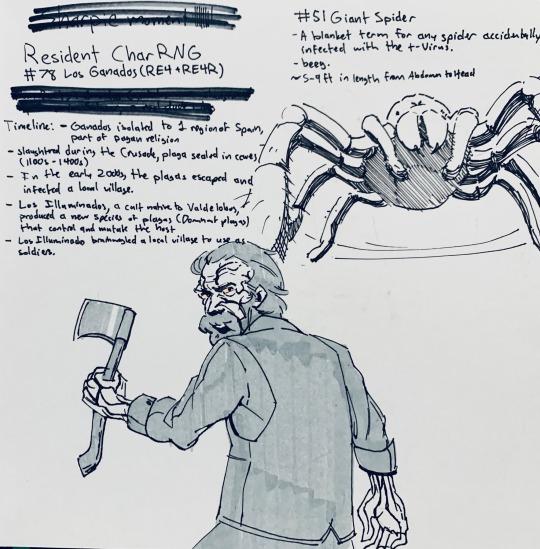 sharpie moment
Resident CharRNG
#78 Los Ganados (RE4 + RE4R)
Timeline: - Ganados isolated to 1 region of Spain,
part of pagan religion
- slaughtred during the Crusade, plaga sealed in caves
(1100s - 1400s)
- In the early 2000s, the plagas escaped and
infected a local village.
- Los Illuminados, a cult native to Valdelobos,
produced a new species of plagas (Dominant plagas)
that control and mutate the host
- Los Illuminado brainwashed a local village to use as
soldiers.
#51 Giant Spider
- A blanket term for any spider accidentally
infected with the t-Virus.
- beeg.
~ 5-9 ft in length from Abdomen to Head